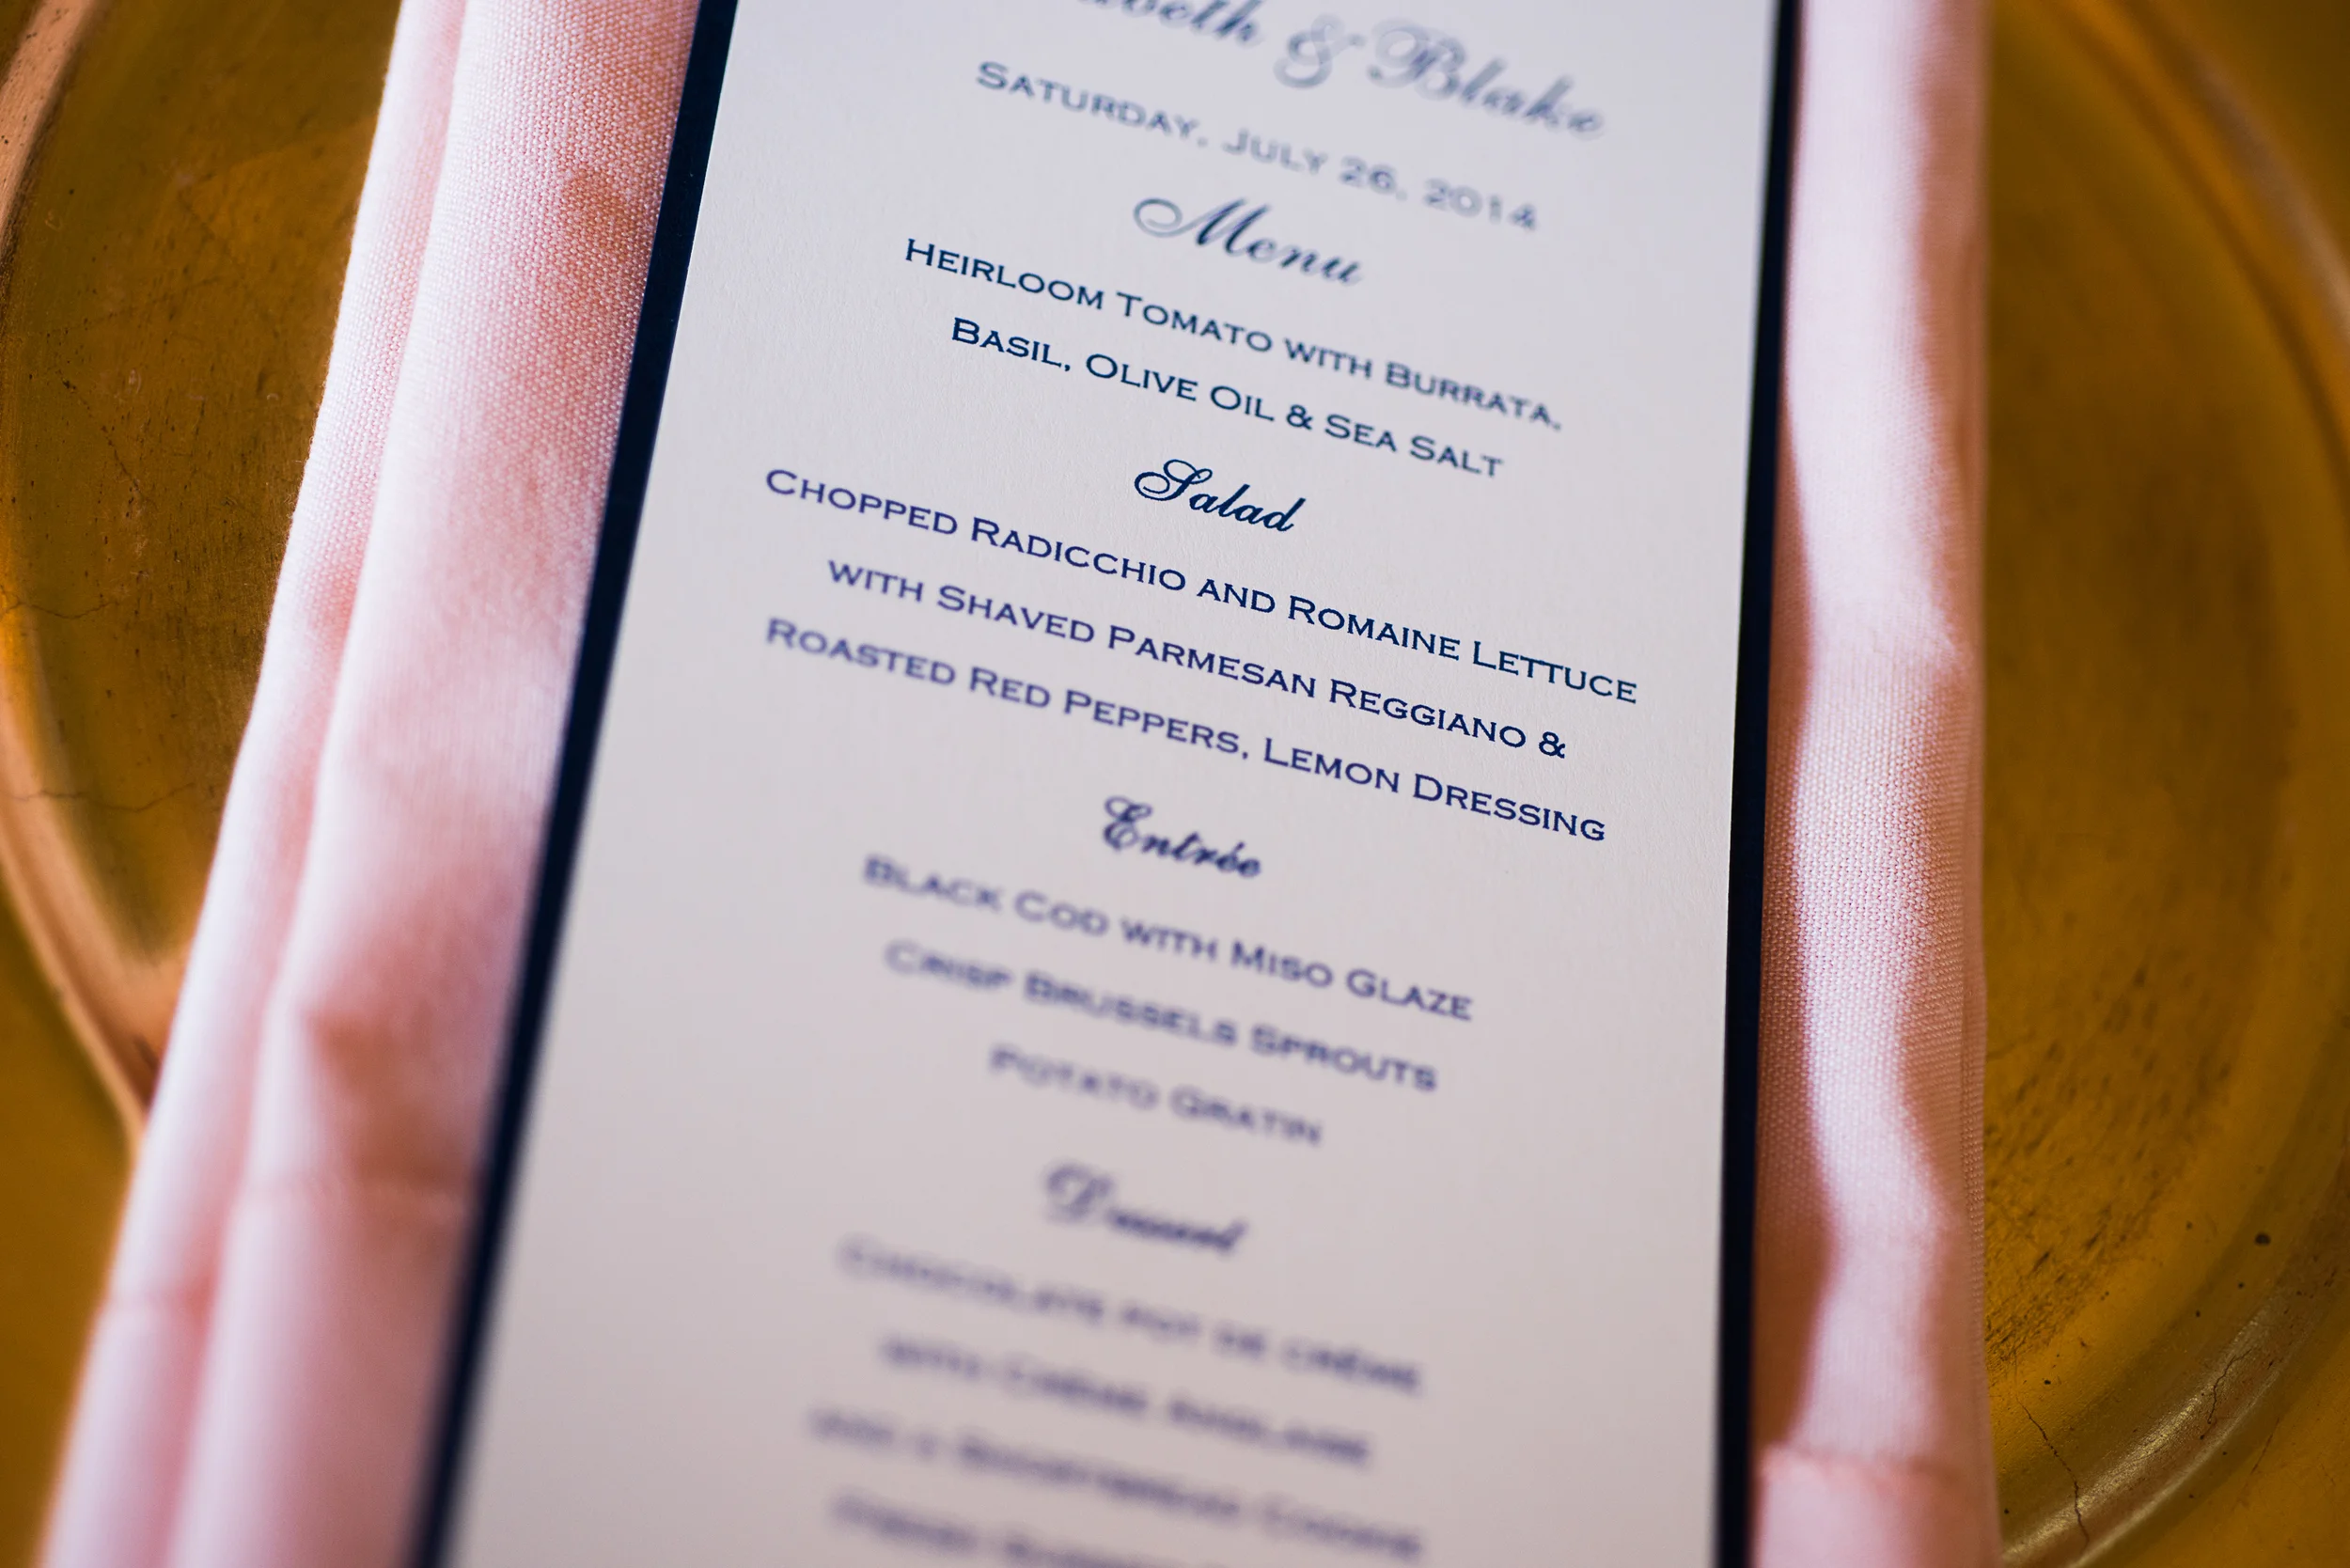 & Blake
Saturday, July 26, 2014
Menu
Heirloom Tomato with Burrata,
Basil, Olive Oil & Sea Salt
Salad
Chopped Radicchio and Romaine Lettuce
with Shaved Parmesan Reggiano &
Roasted Red Peppers, Lemon Dressing
Entrée
Black Cod with Miso Glaze
Crisp Brussels Sprouts
Potato Gratin
Dessert
Chocolate Pot de Crème
with Crème Anglaise